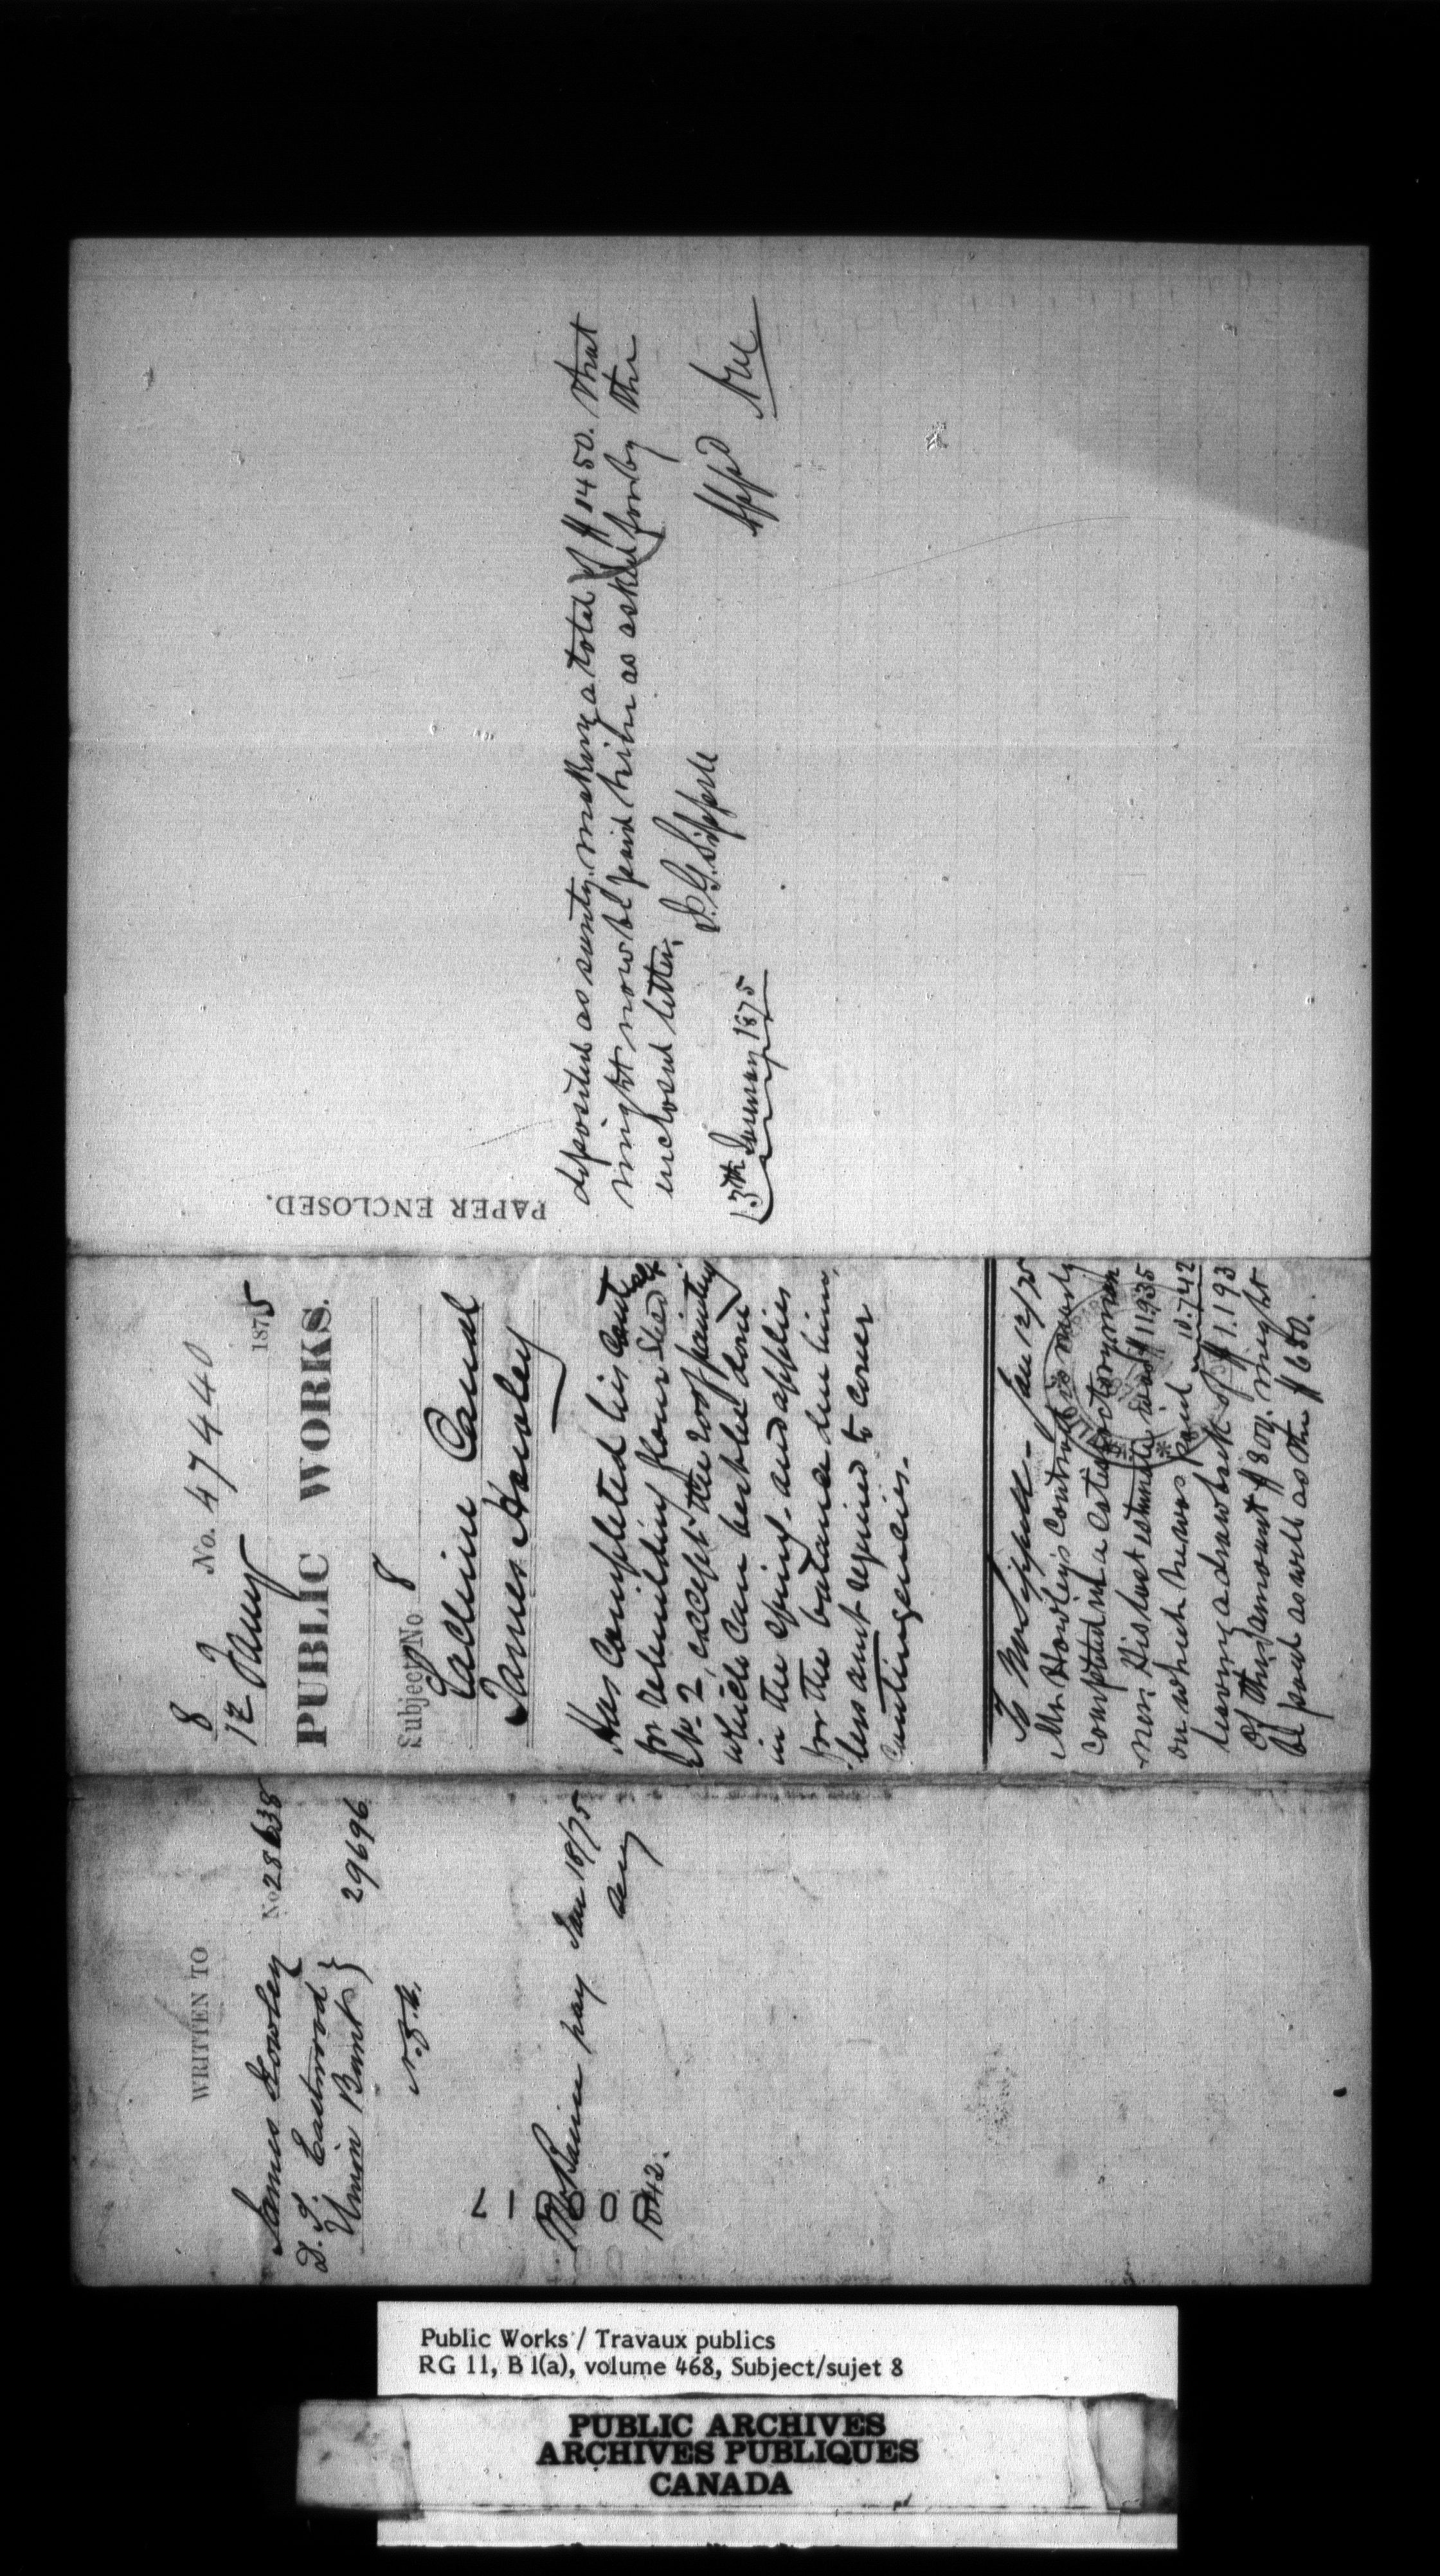 WRITTEN TO
James Howley No 28638
D. S. Eastwood }
Union Bank } 29696
Mr Baine pay Jan 18/75
1042.
0000017
8 No. 47440
12 Jany 1875
PUBLIC WORKS.
Subject No 8
Lachine Canal
James Howley
Has completed his contract
for rebuilding flour shed
No. 2, except the roof painting
which can best be done
in the spring - and applies
for the balance due him,
less amt required to cover
contingencies.
To Mr Sippell - Jan 12/75
Mr. Howley's contract is nearly
completed in a satisfactory man
ner. His last estimate was $11935
on which he was paid 10.742
leaving a drawback of $1.193
Of this amount $800. might
be paid as well as the $650.
PAPER ENCLOSED.
deposited as surety, making a total of $1450. that
might now be paid him as asked for by the
inclosed letter.
J. G. Sippell
13th January 1875
App'd
Public Works / Travaux publics
RG 11, B 1(a), volume 468, Subject/sujet 8
PUBLIC ARCHIVES
ARCHIVES PUBLIQUES
CANADA